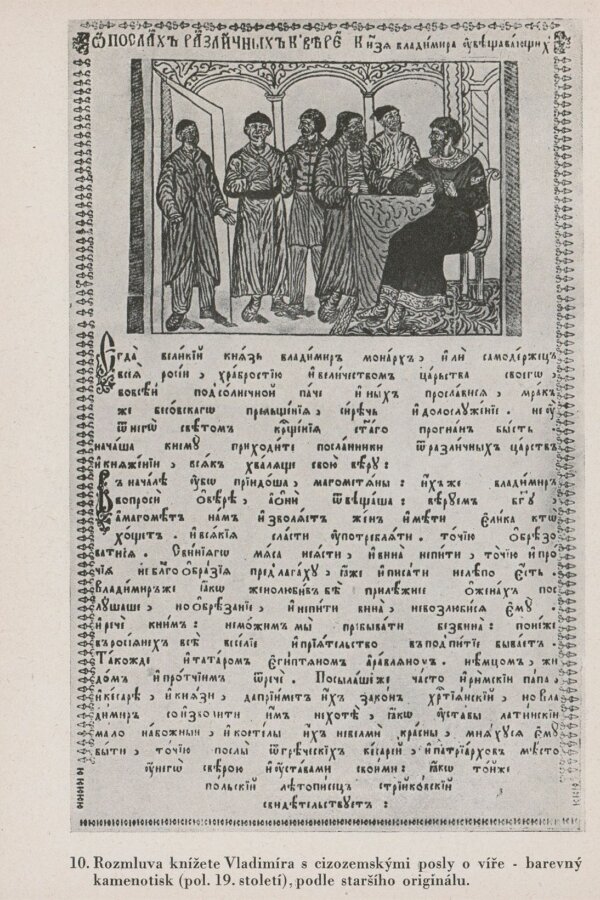 Ѿ ПОСЛАХЪ РАЗЛИЧНЫХЪ К' ВѢРЕ Кн҃зѧ владимира ѹвѣщавающих
Егда̀ великїй кнѧзь владимиръ мона́рхъ, и҆ли самодержецъ
всеѧ росїи, хра́бростїю и҆ величествомъ царьства своегѡ,
во всей под солночной паче и҆ных прославися, мракъ
же бесовскагѡ прельщенїѧ, си́речь и҆долослуже́нїе.
ѿ негѡ свѣтомъ кр҃щенїѧ ст҃агѡ прогнан бысть.
начаша к нему̀ приходи́ти посланники ѿ различных царствъ
и҆ кнѧженїи, всѧкъ хвалѧще свою̀ вѣру:
Въ нача́лѣ ѹ҆бѡ прїидоша, магометѧны: и҆хъ же владимиръ
вопроси ѡ҆ вѣре, а҆ ѡни ѿвѣщаша: вѣруемъ бг҃ѹ
а магометъ намъ и҆зволѧетъ жен и҆мѣти є҆лика ктѡ
хощетъ. и҆ всѧкїѧ сласти ѹ҆потреблѧти. то́чїю ѡ҆брѣзо
ватисѧ. Свиниагѡ мѧса не ꙗсти, и҆ вина не пити, то́чїю и҆ про
чїѧ небл҃гоѡ҆бра́зїѧ пред'лагаху, ꙗ҆же и҆ писати нелѣпо є҆сть.
Владимиръ же ꙗ҆кѡ женолюбивъ бѣ̀ прилѣжнее ѡ҆ женахъ пос
лушаше, но ѡ҆брѣзанїе, и҆ непити вина, невозлюбисѧ є҆мѹ̀.
и҆ рече к ним: неможимъ мы̀ пребывати без вина: понеже
въ росїѧнехъ всѐ весе́лїе и҆ прїѧ́тельство въ подпитїе бываетъ.
Такожде и҆ татаромъ є҆гиптѧномъ а҆равлѧномъ. нѣмцомъ, жи
дѡмъ и҆ про́тчимъ ѿречѐ. Посылаше же часто и҆ ри́мскїй папа,
и҆ кесарѐ, и҆ кнѧзи, да прїиметъ и҆хъ законъ хр҃тїѧнскїй, но вла
димиръ соизволити и҆мъ не хотѣ̀, ꙗ҆кѡ ѹ҆ставы латинскїи
мало набожныи, и҆ костелы и҆хъ невельми красны, мнѧхусѧ є҆мѹ̀
быти, то́чїю послы ѿ гре́ческихъ кесарей и҆ патрїархов мѣсто
ѹ҆ негѡ с вѣрою и҆ ѹ҆ставами своими: ꙗ҆кѡ то́й же
польскїй лѣтописецъ стрїйковскїй
свидѣтельствуетъ:
10. Rozmluva knížete Vladimíra s cizozemskými posly o víře - barevný
kamenotisk (pol. 19. století), podle staršího originálu.